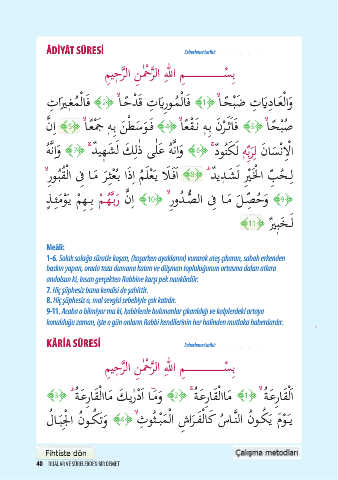 ÂDİYÂT SÛRESİ
بِسْمِ اللهِ الرَّحْمٰنِ الرَّحِيمِ
وَالْعَادِيَاتِ ضَبْحًا ﴿1﴾ فَالْمُورِيَاتِ قَدْحًا ﴿2﴾ فَالْمُغِيرَاتِ
صُبْحًا ﴿3﴾ فَاَثَرْنَ بِهِ نَقْعًا ﴿4﴾ فَوَسَطْنَ بِهِ جَمْعًا ﴿5﴾ اِنَّ
الْاِنْسَانَ لِرَبِّهِ لَكَنُودٌ ﴿6﴾ وَاِنَّهُ عَلٰى ذٰلِكَ لَشَهِيدٌ ﴿7﴾ وَاِنَّهُ
لِحُبِّ الْخَيْرِ لَشَدِيدٌ ﴿8﴾ اَفَلَا يَعْلَمُ اِذَا بُعْثِرَ مَا فِى الْقُبُورِ
﴿9﴾ وَحُصِّلَ مَا فِى الصُّدُورِ ﴿10﴾ اِنَّ رَبَّهُمْ بِهِمْ يَوْمَئِذٍ
لَخَبِيرٌ ﴿11﴾
Meâli:
1-6. Soluk soluğa süratle koşan, (koşarken ayaklarını) vurarak ateş çıkaran, sabah erkenden
baskın yapan, orada tozu dumana katan ve düşman topluluğunun ortasına dalan atlara
andolsun ki, insan gerçekten Rabbine karşı pek nankördür.
7. Hiç şüphesiz buna kendisi de şahittir.
8. Hiç şüphesiz o, mal sevgisi sebebiyle çok katıdır.
9-11. Acaba o bilmiyor mu ki, kabirlerde bulunanlar çıkarıldığı ve kalplerdeki ortaya
konulduğu zaman, işte o gün onların Rabbi kendilerinin her halinden mutlaka haberdardır.
KÂRİA SÛRESİ
بِسْمِ اللهِ الرَّحْمٰنِ الرَّحِيمِ
اَلْقَارِعَةُ ﴿1﴾ مَاالْقَارِعَةُ ﴿2﴾ وَمَا اَدْرٰيكَ مَاالْقَارِعَةُ ﴿3﴾
يَوْمَ يَكُونُ النَّاسُ كَالْفَرَاشِ الْمَبْثُوثِ ﴿4﴾ وَتَكُونُ الْجِبَالُ
Fihriste dön
Çalışma metodları
40